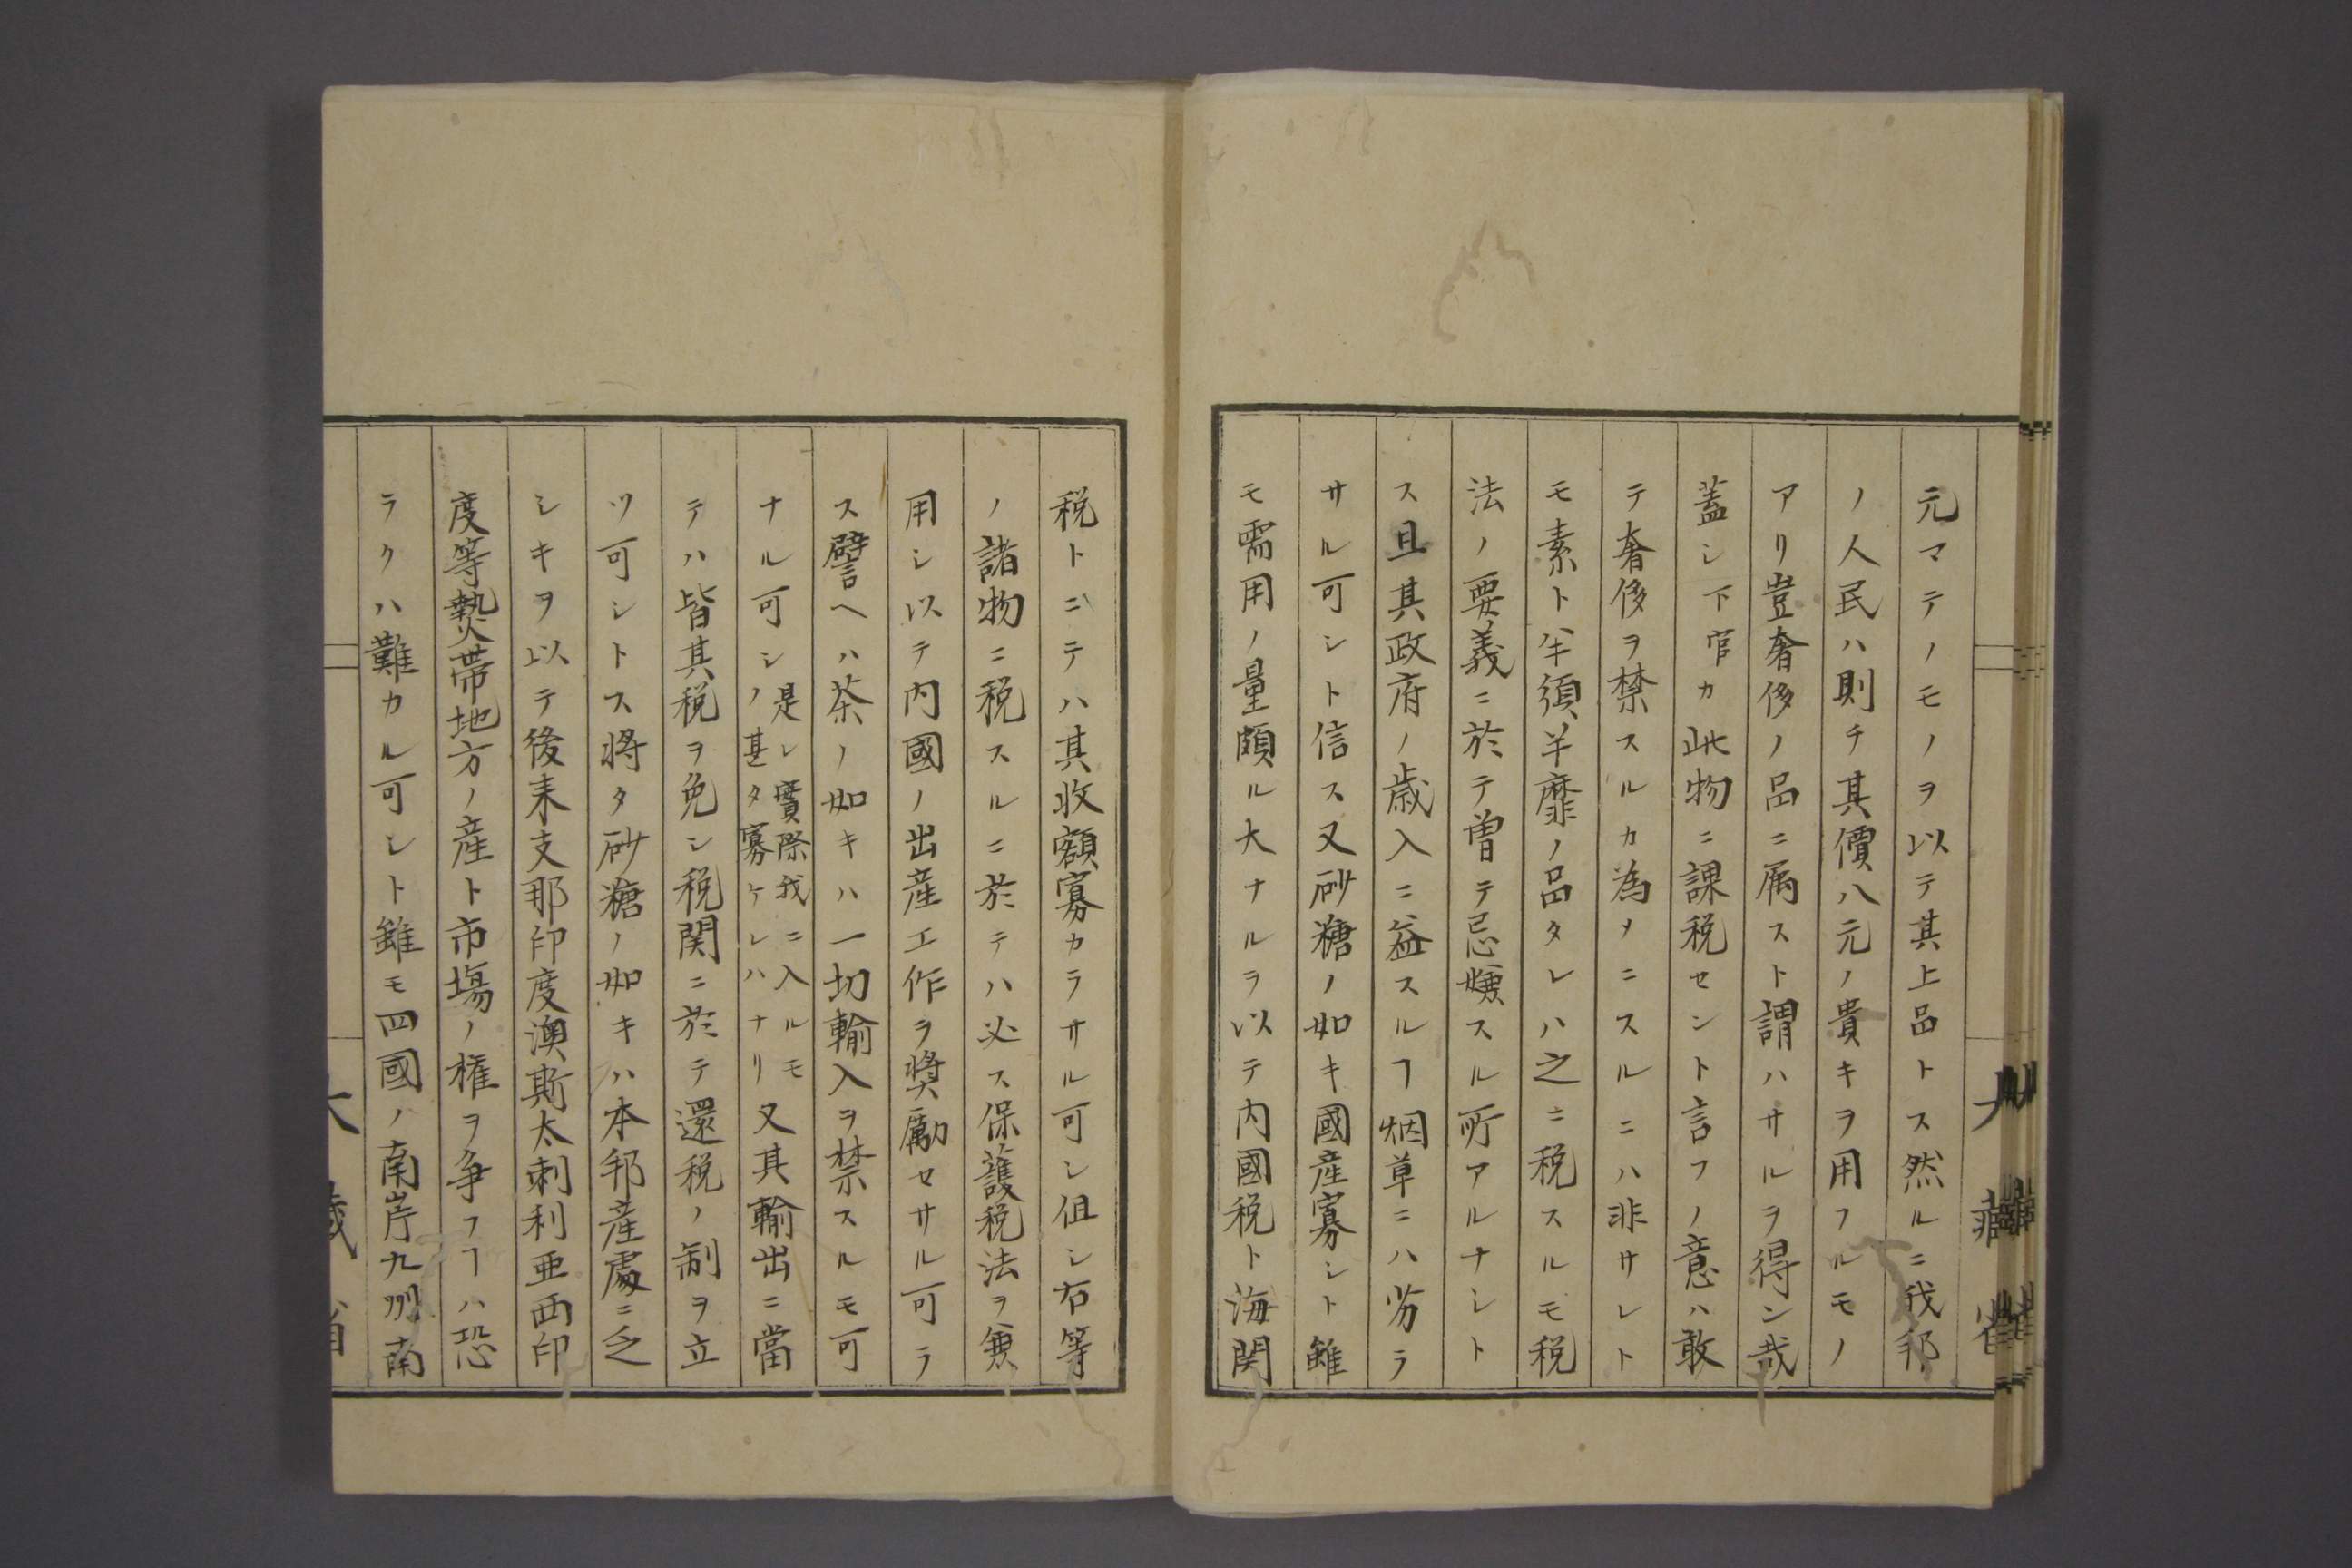 元マテノモノヲ以テ其上品トス然ルニ我邦
ノ人民ハ則チ其價八元ノ貴キヲ用フルモノ
アリ豈奢侈ノ品ニ属スト謂ハサルヲ得ン哉
蓋シ下官カ此物ニ課税セント言フノ意ハ敢
テ奢侈ヲ禁スルカ為メニスルニハ非サレト
モ素ト半須半靡ノ品タレハ之ニ税スルモ税
法ノ要義ニ於テ曽テ忌嫌スル所アルナシト
ス且其政府ノ歳入ニ益スルヿ烟草ニハ劣ラ
サル可シト信ス又砂糖ノ如キ國産寡シト雖
モ需用ノ量頗ル大ナルヲ以テ内國税ト海関
税トニテハ其收額寡カラサル可シ但シ右等
ノ諸物ニ税スルニ於テハ必ス保護税法ヲ兼
用シ以テ内國ノ出産工作ヲ奬勵セサル可ラ
ス譬ヘハ茶ノ如キハ一切輸入ヲ禁スルモ可
ナル可シ是レ實際我ニ入ルモノ甚タ寡ケレハナリ又其輸出ニ當
テハ皆其税ヲ免シ税関ニ於テ還税ノ制ヲ立
ツ可シトス将タ砂糖ノ如キハ本邦産處ニ乏
シキヲ以テ後来支那印度澳斯太剌利亜西印
度等熱帯地方ノ産ト市塲ノ権ヲ争フヿハ恐
ラクハ難カル可シト雖モ四國ノ南岸九州南
大藏省